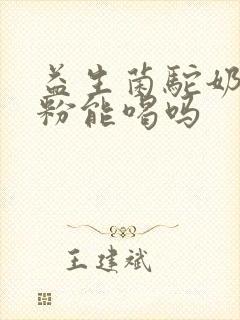 益生菌驼奶
粉能喝吗
王建斌